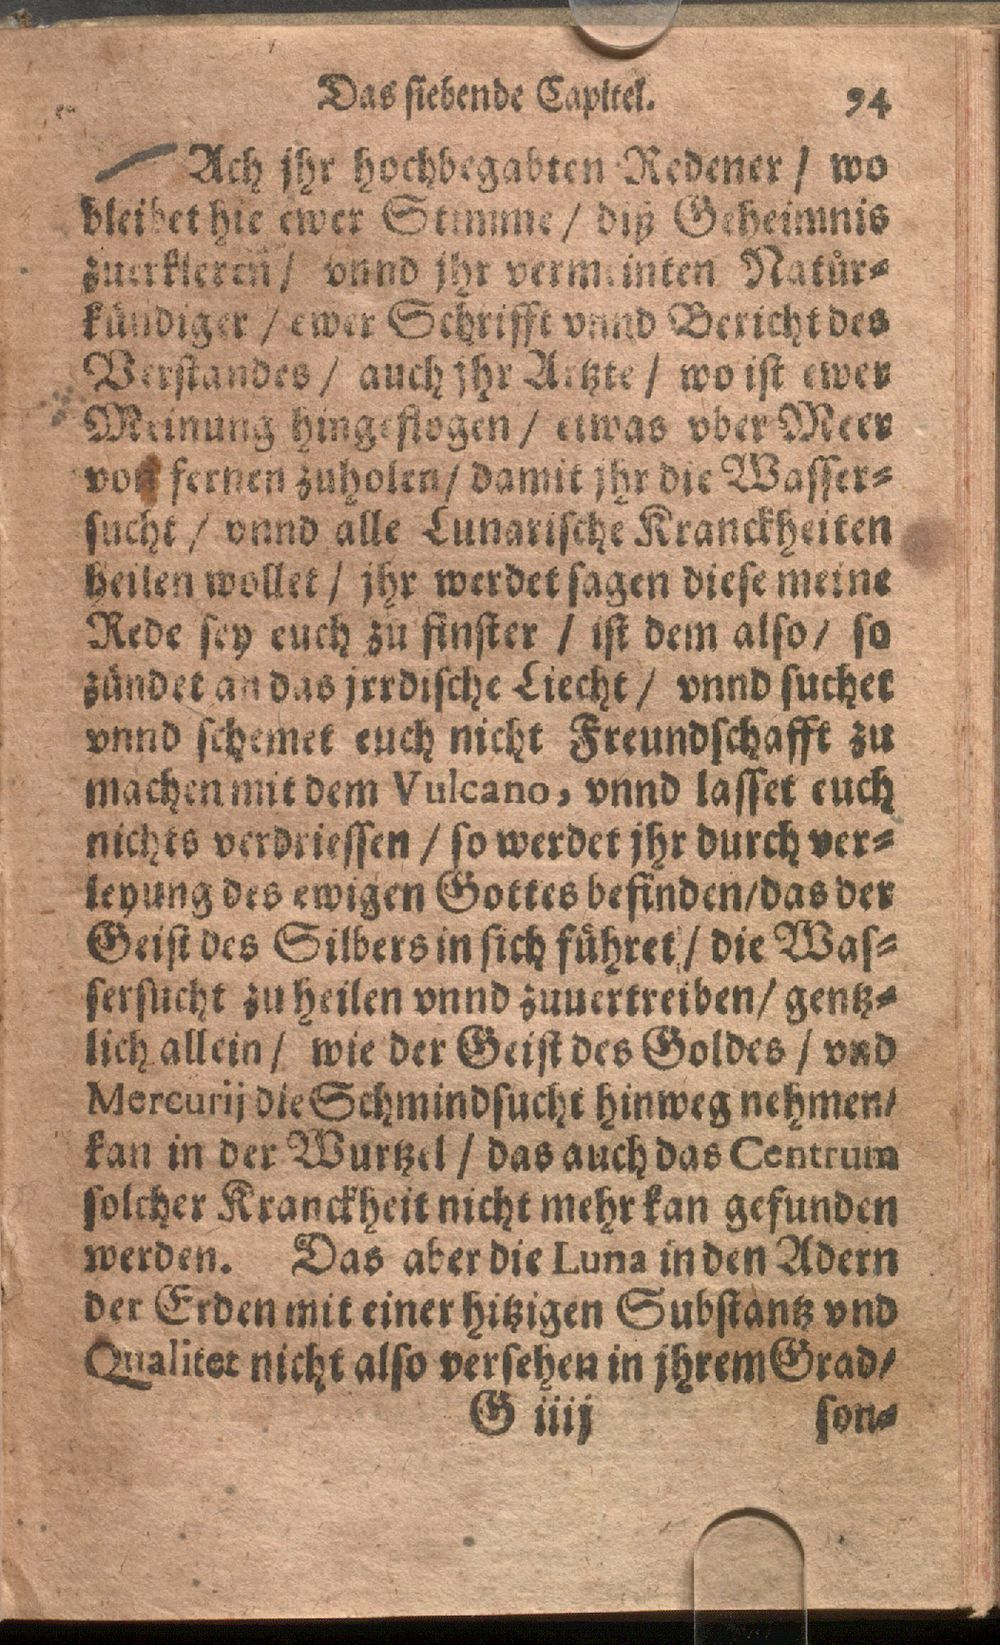 Das siebende Capitel. 94
Ach jhr hochbegabten Redener / wo
bleibet hie ewer Stimme / diß Geheimnis
zuerkleren / vnnd jhr vermeinten Natůr⸗
kündiger / ewer Schrifft vnnd Bericht des
Verstandes / auch jhr Artzte / wo ist ewer
Meinung hingeflogen / etwas vber Meer
von fernen zuholen / damit jhr die Wasser⸗
sucht / vnnd alle Lunarische Kranckheiten
heilen wollet / jhr werdet sagen diese meine
Rede sey euch zu finster / ist dem also / so
zündet an das jrrdische Liecht / vnnd suchet
vnnd schemet euch nicht Freundschafft zu
machen mit dem Vulcano, vnnd lasset euch
nichts verdriessen / so werdet jhr durch ver⸗
leyung des ewigen Gottes befinden / das der
Geist des Silbers in sich führet / die Was⸗
sersucht zu heilen vnnd zuuertreiben / gentz⸗
lich allein / wie der Geist des Goldes / vnd
Mercurij die Schmindsucht hinweg nehmen /
kan in der Wurtzel / das auch das Centrum
solcher Kranckheit nicht mehr kan gefunden
werden. Das aber die Luna in den Adern
der Erden mit einer hitzigen Substantz vnd
Qualitet nicht also versehen in jhrem Grad /
G iiij son⸗